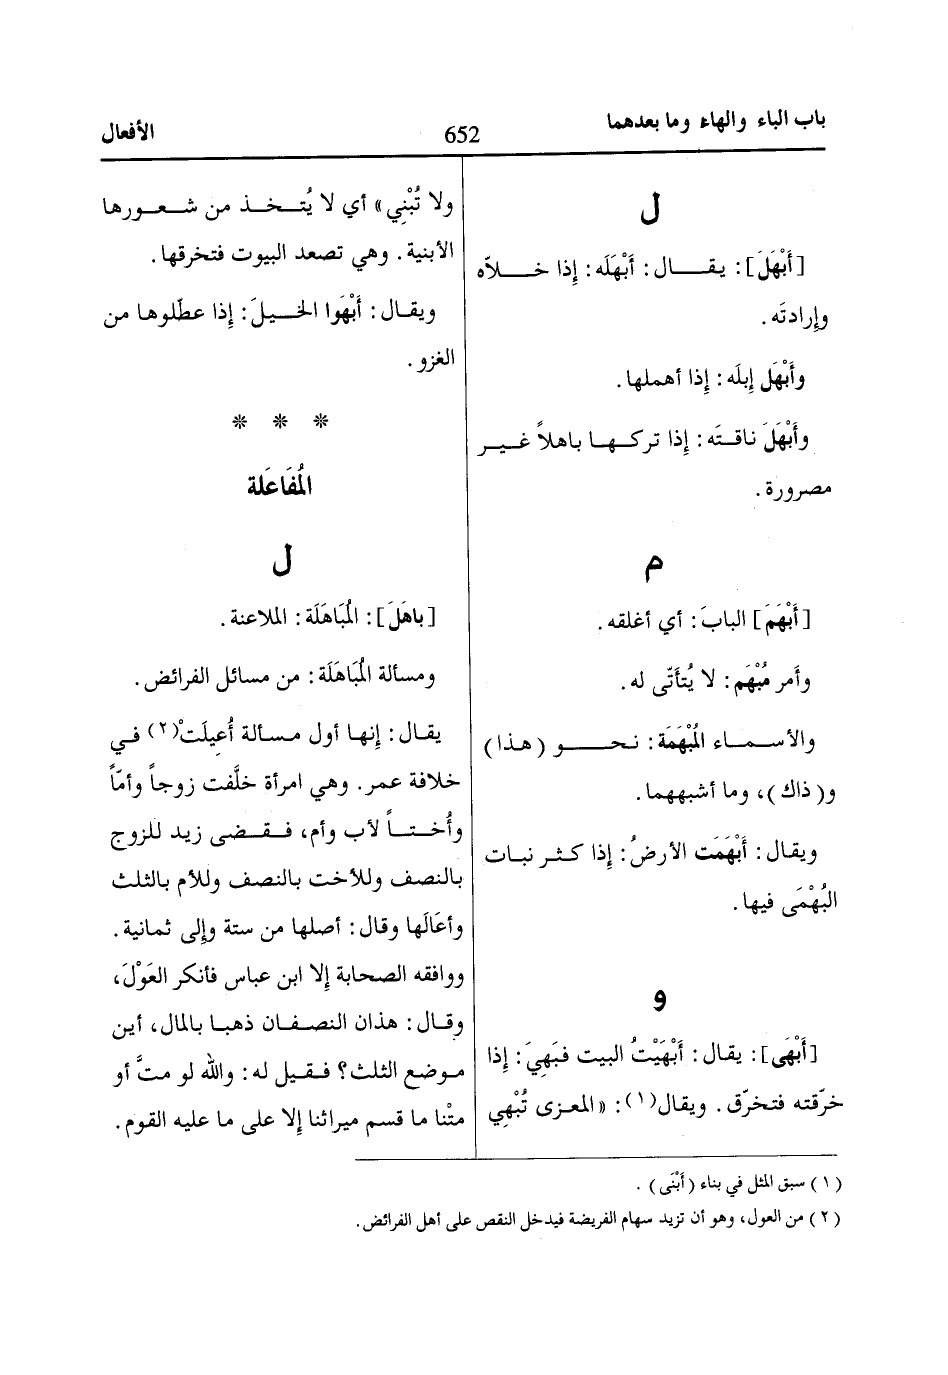 باب الباء والهاء وما بعدهما
652
الأفعال
ل
[أَبْهَلَ]: يقـال: أبْهَلَه: إذا خـلاّه
وإرادتَه.
وأَبْهَل إبلَه: إذا أهملها.
وأَبْهَلَ ناقتَه: إذا تركها باهلاً غير
مصرورة.
م
[أَبْهَمَ] البابَ: أي أغلقه.
وأمر مُبْهَم: لا يُتأَتّى له.
والأسماء المُبْهَمَة: نحو (هذا)
و(ذاك)، وما أشبههما.
ويقال: أَبْهَمَت الأرضُ: إذا كثر نبات
البُهْمَى فيها.
و
[أَبْهَى]: يقال: أَبْهَيْتُ البيت فبَهِيَ: إذا
خرّقته فتخرّق. ويقال(١): «المعزى تُبْهِي
ولا تُبْنِي» أي لا يُتخذ من شعورها
الأبنية. وهي تصعد البيوت فتخرقها.
ويقال: أَبْهَوا الخيلَ: إذا عطّلوها من
الغزو.
* * *
المُفَاعَلة
ل
[باهَلَ]: المُبَاهَلَة: الملاعنة.
ومسألة المُبَاهَلَة: من مسائل الفرائض.
يقال: إنها أول مسألة أُعيلَتْ(٢) في
خلافة عمر. وهي امرأة خلَّفت زوجاً وأمّاً
وأُختاً لأب وأم، فقضى زيد للزوج
بالنصف وللأخت بالنصف وللأم بالثلث
وأعَالَها وقال: أصلها من ستة وإلى ثمانية.
ووافقه الصحابة إلا ابن عباس فأنكر العَوْلَ،
وقال: هذان النصفان ذهبا بالمال، أين
موضع الثلث؟ فقيل له: والله لو متَّ أو
متْنا ما قسم ميراثنا إلا على ما عليه القوم.
(١) سبق المثل في بناء (أَبْنَى).
(٢) من العول، وهو أن تزيد سهام الفريضة فيدخل النقص على أهل الفرائض.